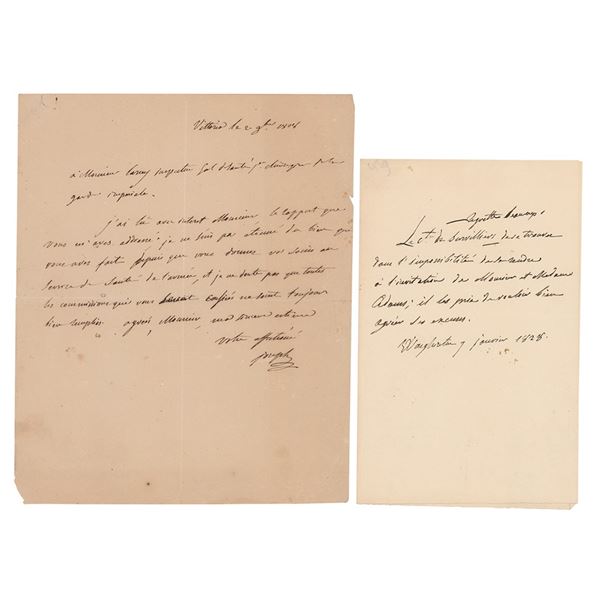 Vittoria le 2 9bre 1808
à Monsieur Larrey inspecteur Gal de Santé, 1er chirurgien de la
garde impériale.
j'ai lu avec interet Monsieur, le rapport que
vous m'aves adressé; je ne suis pas étonné du bien que
vous aves fait depuis que vous donnes vos soins au
service de Santé de l'armée, et je ne doute pas que toutes
les commissions qui vous seront confiées ne soient toujours
bien remplies. agréés, Monsieur, mon sincere attachement
votre affectioné
joseph
Le Cte de Survilliers de se trouver
dans l'impossibilité de se rendre
à l'invitation de Monsieur et Madame
Adams; il les prie de vouloir bien
agréer ses excuses.
Washington 7 janvier 1828.